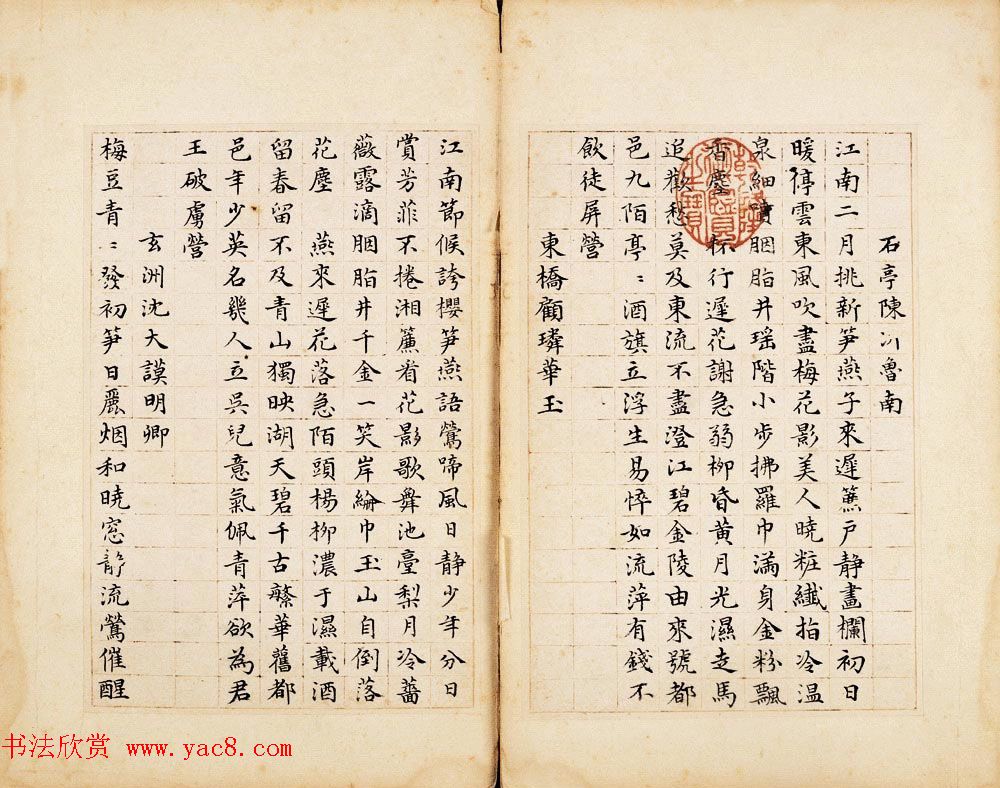 石亭陳沂魯南
江南二月挑新笋燕子來遲簾戸静畫欄初日
暖停雲東風吹盡梅花影美人曉粧纖指冷温
泉細漬胭脂井瑶階小步拂羅巾滿身金粉飄
香塵 行遲花謝急弱柳昏黄月光濕走馬
追歡愁莫及東流不盡澄江碧金陵由來號都
邑九陌亭〻酒旗立浮生易悴如流萍有錢不
飲徒屏營
東橋顧璘華玉
江南節候誇櫻笋燕語鶯啼風日静少年分日
賞芳菲不捲湘簾看花影歌舞池臺梨月冷薔
薇露滴胭脂井千金一笑岸綸巾玉山自倒落
花塵 燕來遲花落急陌頭楊柳濃于濕載酒
留春留不及青山獨映湖天碧千古繁華舊都
邑年少英名幾人立吳兒意氣佩青萍欲為君
王破虜營
玄洲沈大謨明卿
梅豆青〻發初笋日麗烟和曉窓靜流鶯催醒
书法欣赏 www.yac8.com